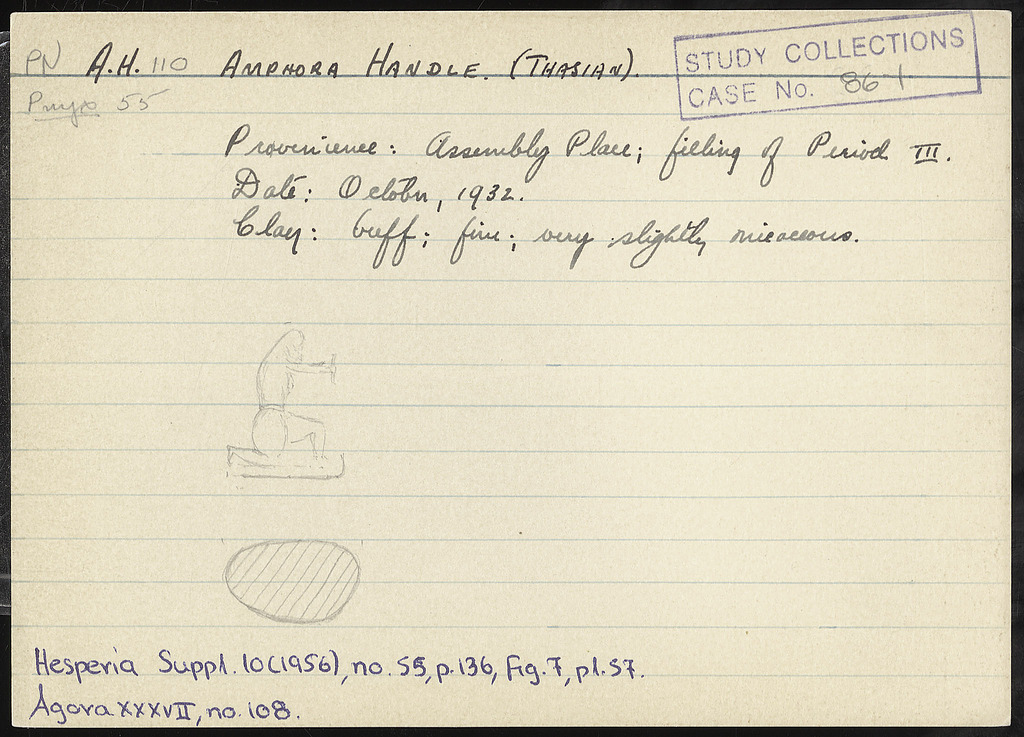 PN A.H. 110 AMPHORA HANDLE. (THASIAN).
STUDY COLLECTIONS
CASE No. 86-1
Pnyx 55
Provenience: Assembly Place; filling of Period III.
Date: October, 1932.
Clay: buff; fine; very slightly micaceous.
Hesperia Suppl. 10 (1956), no. 55, p. 136, fig. 7, pl. 57.
Agora XXXVII, no. 108.